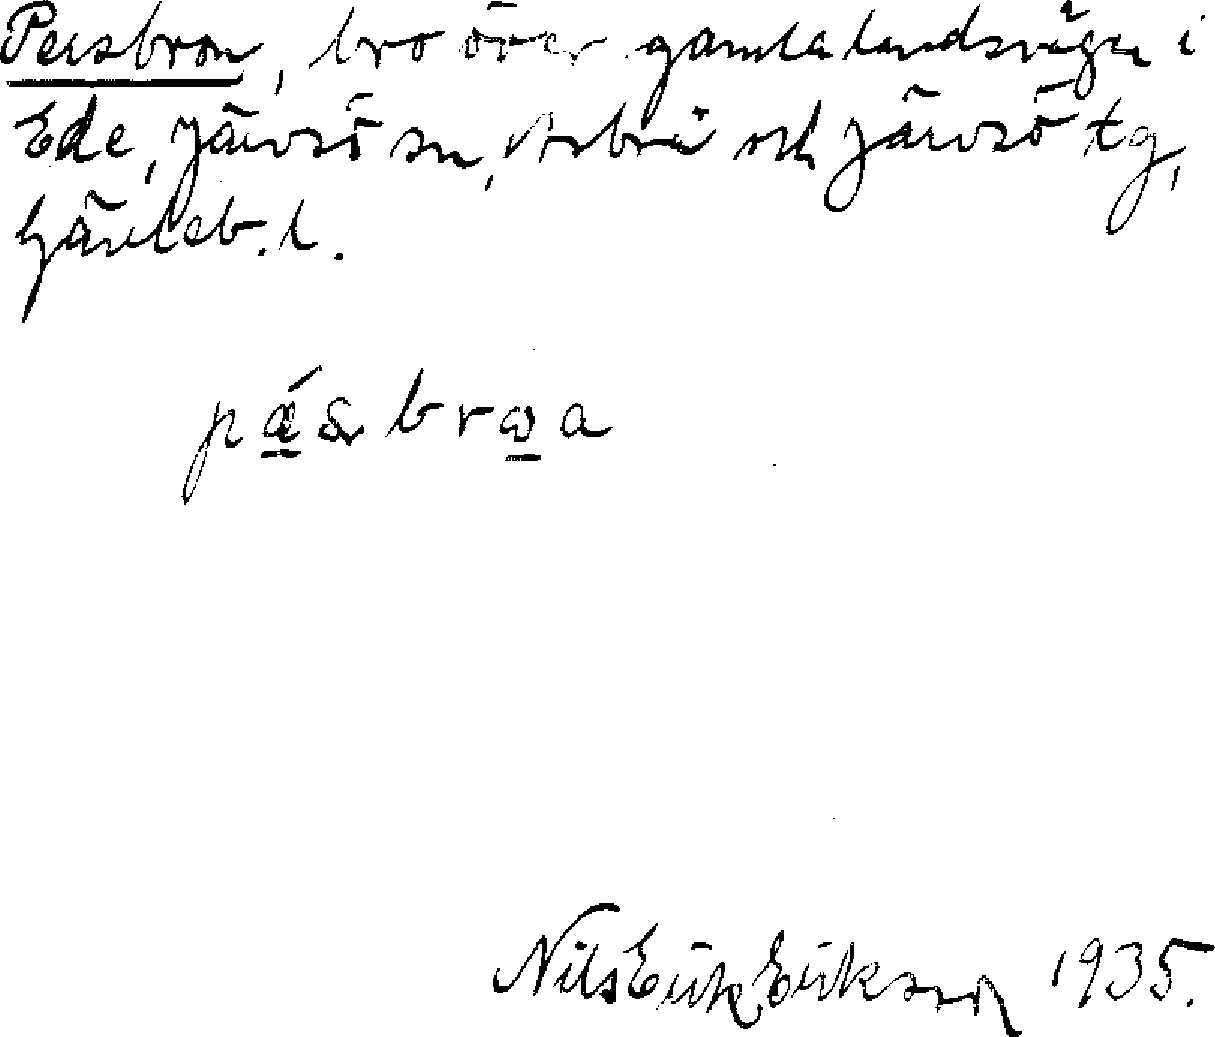 Persbron, bro över gamla landsvägen i
Ede, Järvsö sn, Arbrå och Järvsö tg,
Gävleb. l.
Nils Erik Erikson 1935.